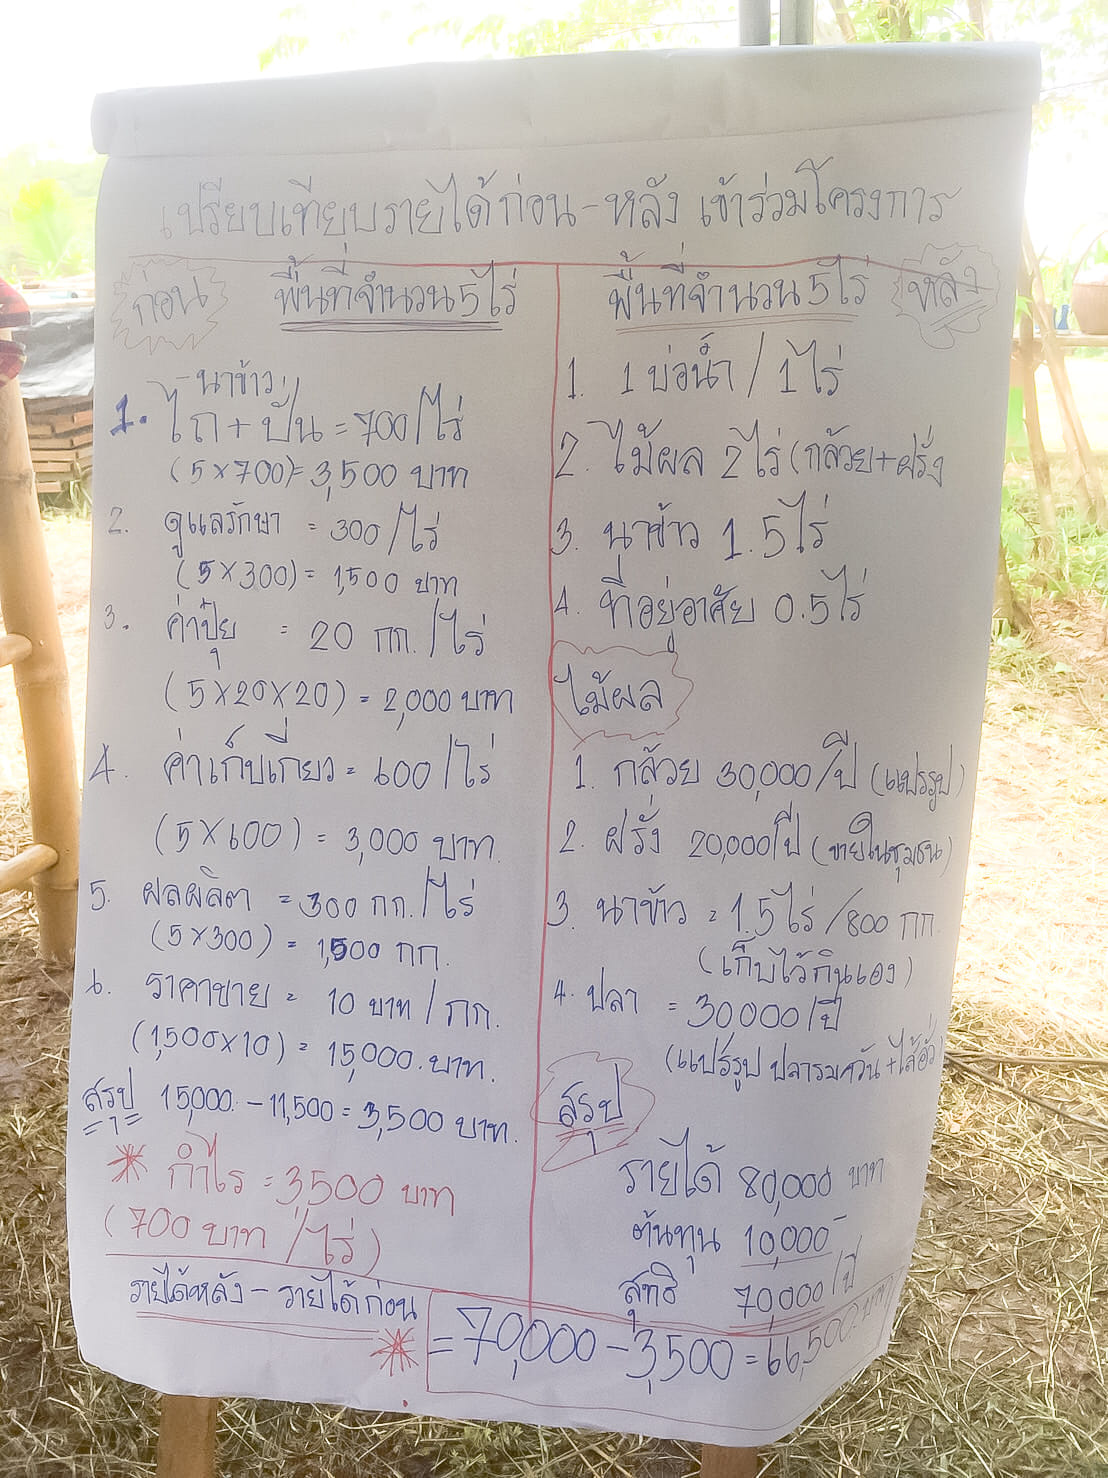 เปรียบเทียบรายได้ก่อน-หลัง เข้าร่วมโครงการ
ก่อน
พื้นที่จำนวน 5ไร่
- นาข้าว
1. ไถ + ปั่น = 700/ไร่
(5 x 700) = 3,500 บาท
2. ดูแลรักษา = 300/ไร่
(5 x 300) = 1,500 บาท
3. ค่าปุ๋ย = 20 กก./ไร่
(5 x 20 x 20) = 2,000 บาท
4. ค่าเก็บเกี่ยว = 600/ไร่
(5 x 600) = 3,000 บาท.
5. ผลผลิต = 300 กก./ไร่
(5 x 300) = 1,500 กก.
6. ราคาขาย = 10 บาท/กก.
(1,500 x 10) = 15,000. บาท.
สรุป 15,000 - 11,500 = 3,500 บาท.
กำไร = 3,500 บาท
(700 บาท/ไร่)
พื้นที่จำนวน 5ไร่
หลัง
1. 1 บ่อน้ำ / 1 ไร่
2. ไม้ผล 2 ไร่ (กล้วย + ฝรั่ง
3. นาข้าว 1.5 ไร่
4. ที่อยู่อาศัย 0.5 ไร่
ไม้ผล
1. กล้วย 30,000/ปี (แปรรูป)
2. ฝรั่ง 20,000/ปี (ขายในชุมชน)
3. นาข้าว = 1.5ไร่/800 กก.
(เก็บไว้กินเอง)
4. ปลา = 30,000/ปี
(แปรรูป ปลารมควัน + ไส้อั่ว)
สรุป
รายได้ 80,000 บาท
ต้นทุน 10,000 -
สุทธิ 70,000/ปี
รายได้หลัง - รายได้ก่อน
= 70,000 - 3,500 = 66,500 บาท